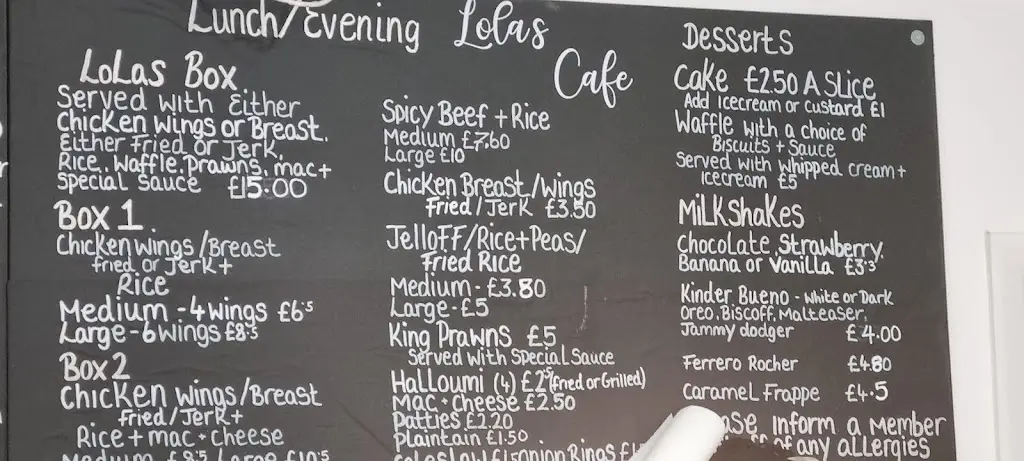 Lunch/Evening
Lolas
Cafe
Lolas Box
Served with Either
Chicken wings or Breast.
Either Fried or Jerk.
Rice. Waffle. Prawns. mac+
special sauce £15.00
Box 1
Chicken wings/Breast
fried or Jerk +
Rice
Medium - 4 wings £6.5
Large - 6 wings £8.5
Box 2
Chicken wings/Breast
Fried/Jerk +
Rice + mac + cheese
Medium £8.5 Large £10.5
Spicy Beef + Rice
Medium £7.60
Large £10
Chicken Breast/wings
Fried/Jerk £3.50
Jelloff/Rice + Peas/
Fried Rice
Medium - £3.80
Large - £5
King Prawns £5
Served with Special Sauce
Halloumi (4) £2.5 (fried or Grilled)
Mac + Cheese £2.50
Patties £2.20
plaintain £1.50
Coleslaw £1 onion Rings
Desserts
Cake £2.50 A Slice
Add Icecream or custard £1
Waffle with a choice of
Biscuits + Sauce
Served with whipped cream +
Icecream £5
Milkshakes
Chocolate, Strawberry,
Banana or Vanilla £3.5
Kinder Bueno - White or Dark
Oreo, Biscoff, Malteaser,
Jammy dodger £4.00
Ferrero Rocher £4.80
Caramel Frappe £4.5
inform a Member
of any allergies